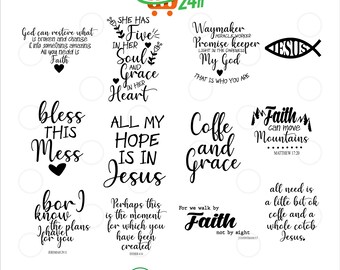 24h
God can restore what
is broken and change
it into something amazing
All you need is
Faith
She has
Fire
in her
Soul
and
Grace
in her
Heart
Waymaker
miracle worker
Promise keeper
light in the darkness
My God
that is who you are
JESUS
bless
THIS
Mess
ALL MY
HOPE
IS IN
Jesus
Coffe
and
Grace
Faith
can move
Mountains
MATTHEW 17:20
for I
know
the plans
I have
for you
Perhaps this
is the moment
for which you
have been
created
For we walk by
Faith
not by sight
all need is
a little bit ok
coffe and a
whole cotob
Jesus.